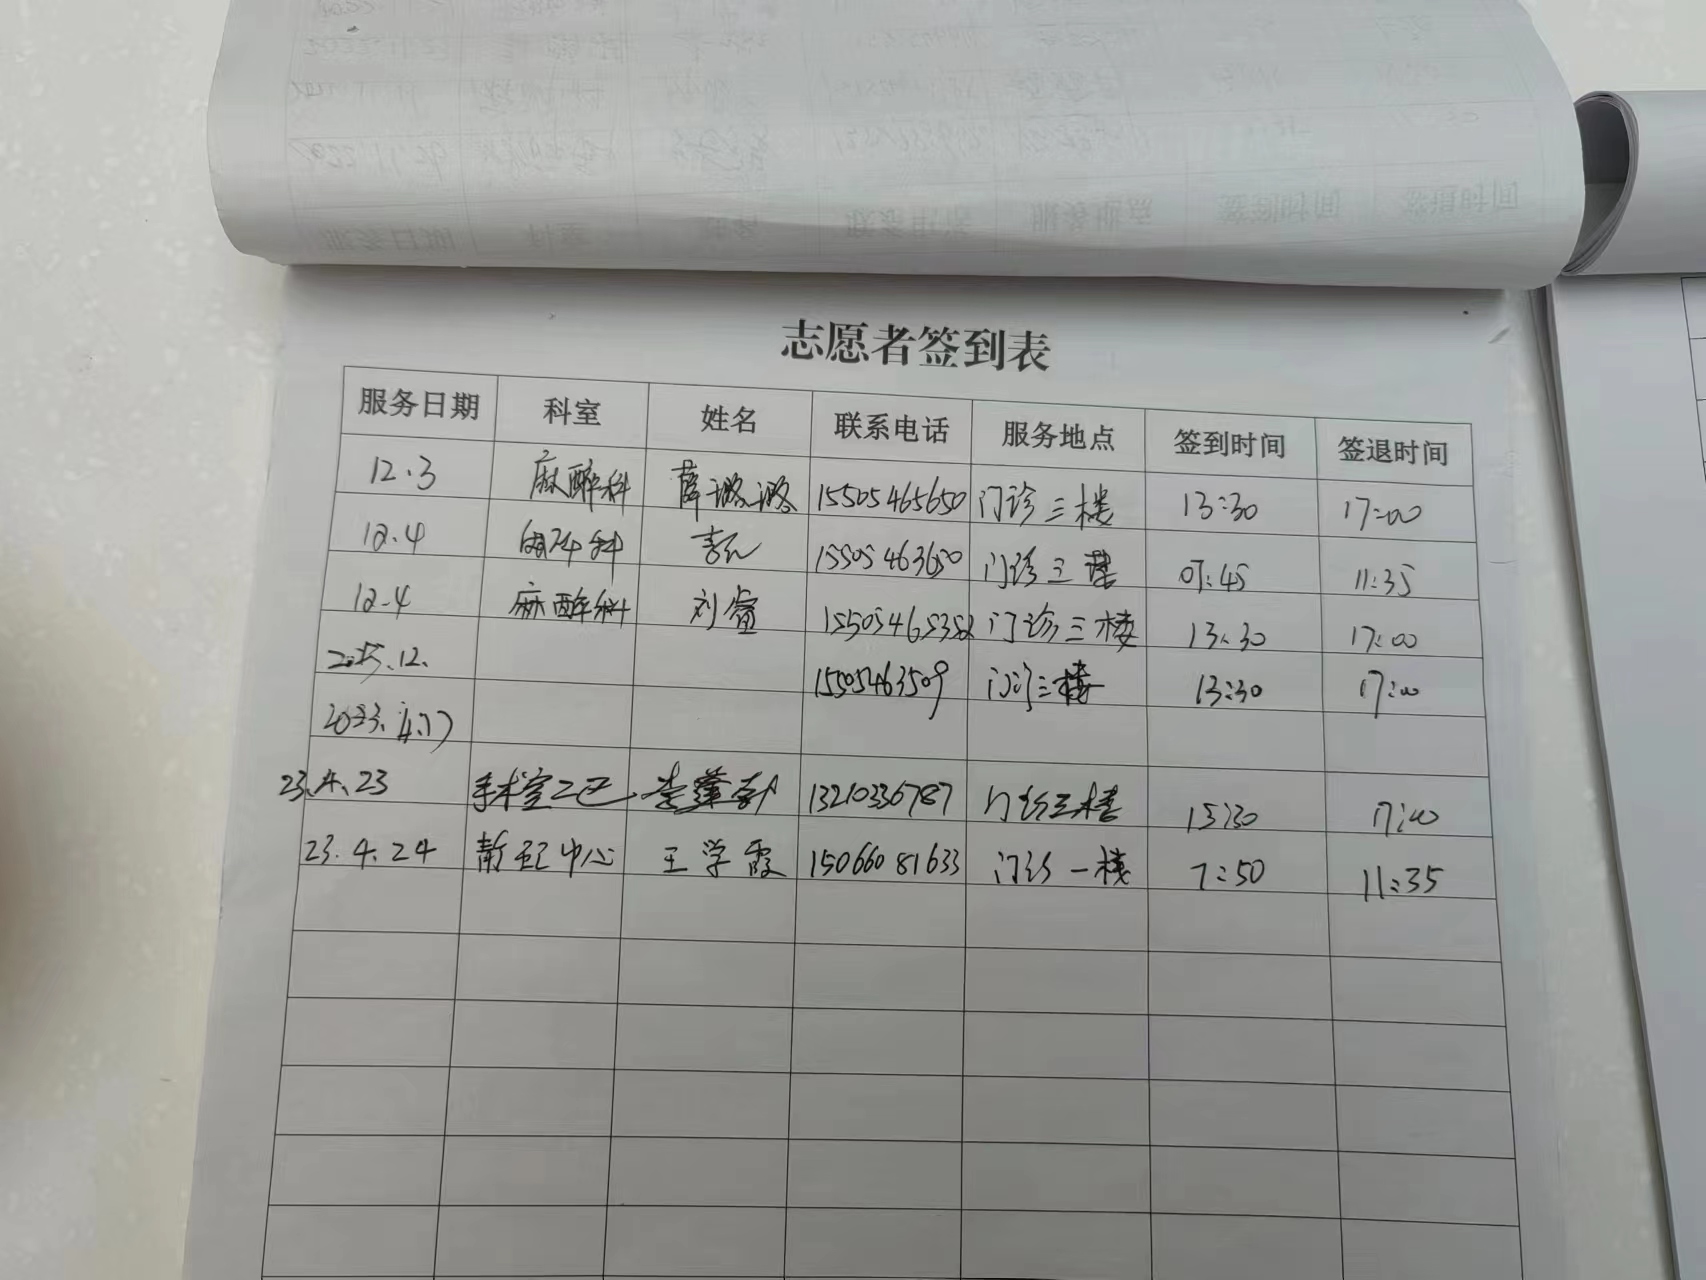 志愿者签到表
服务日期 科室 姓名 联系电话 服务地点 签到时间 签退时间
12.3 麻醉科 薛璐璐 15505465650 门诊三楼 13:30 17:00
12.4 15505463650 门诊三楼 07:45 11:35
12.4 麻醉科 刘 15505465352 门诊三楼 13:30 17:00
12. 15505463509 门诊三楼 13:30 17:00
23.4.23 手术室二区 李 13210336787 门诊三楼 15:30 17:00
23.4.24 静配中心 王学霞 15066081633 门诊一楼 7:50 11:35